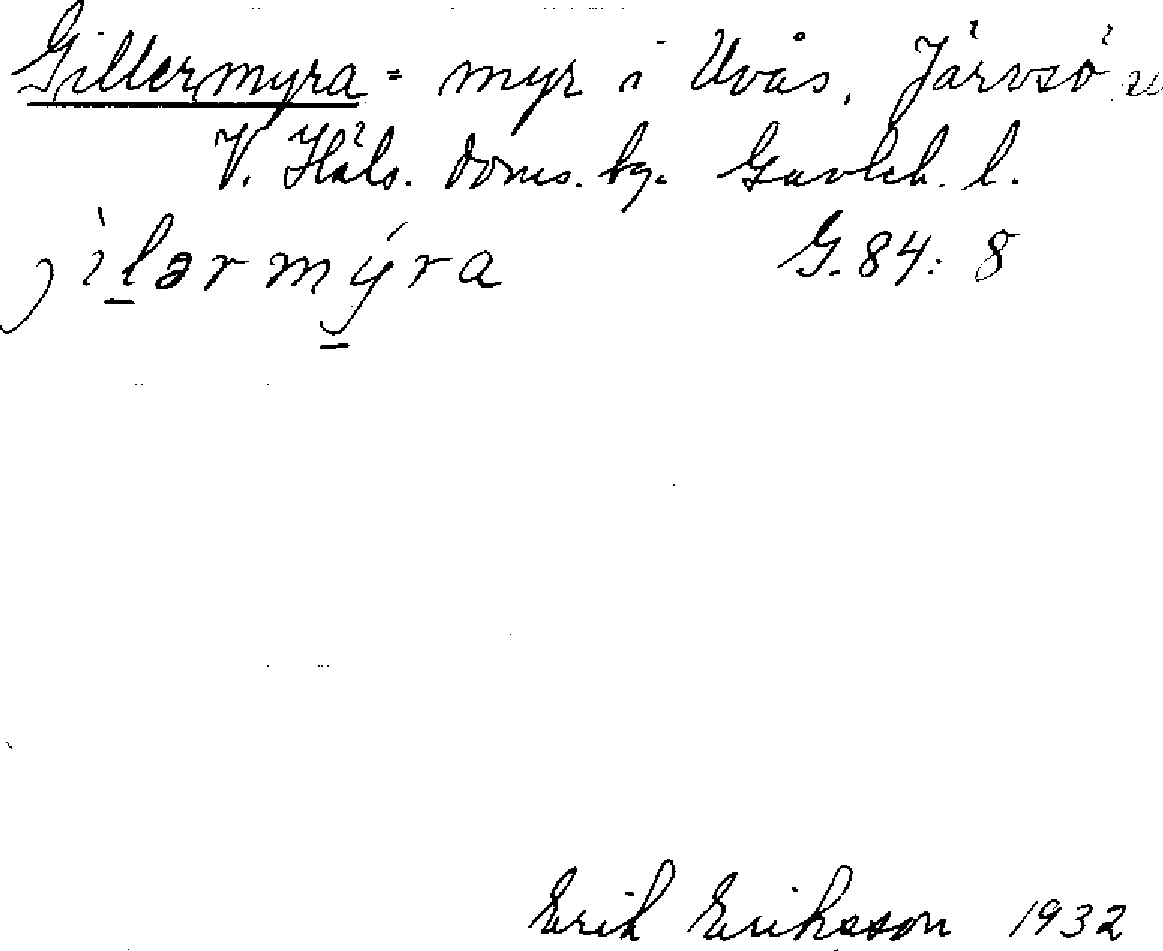 Gillermyra = myr i Uvås, Järvsö sn
V. Häls. doms. bg. Gävleb. l.
jilərmýra G. 84: 8
Erik Erikson 1932